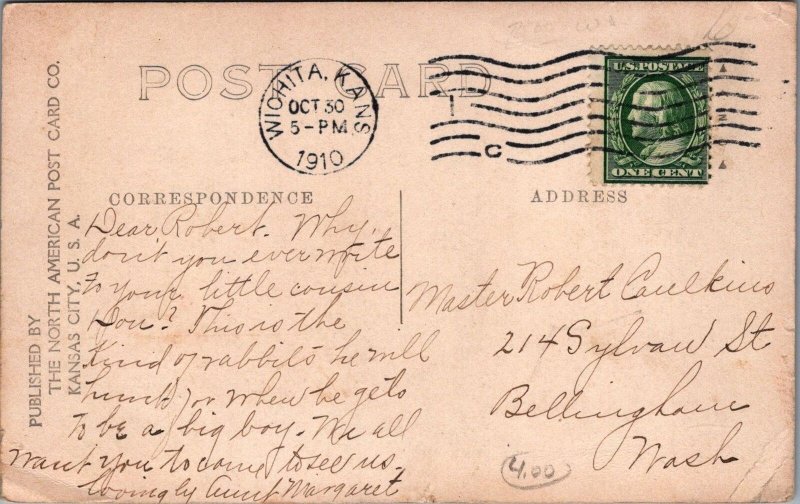 POST CARD
WICHITA, KANS.
OCT 30
5-PM
1910
C
U.S. POSTAGE
ONE CENT
CORRESPONDENCE
ADDRESS
PUBLISHED BY
THE NORTH AMERICAN POST CARD CO.
KANSAS CITY, U. S. A.
Dear Robert. Why
don't you ever write
to your little cousin
Don? This is the
kind of rabbits he will
hunt for when he gets
to be a big boy. We all
want you to come to see us.
Lovingly Aunt Margaret
Master Robert Caulkins
214 Sylvan St
Bellingham
Wash
4.00